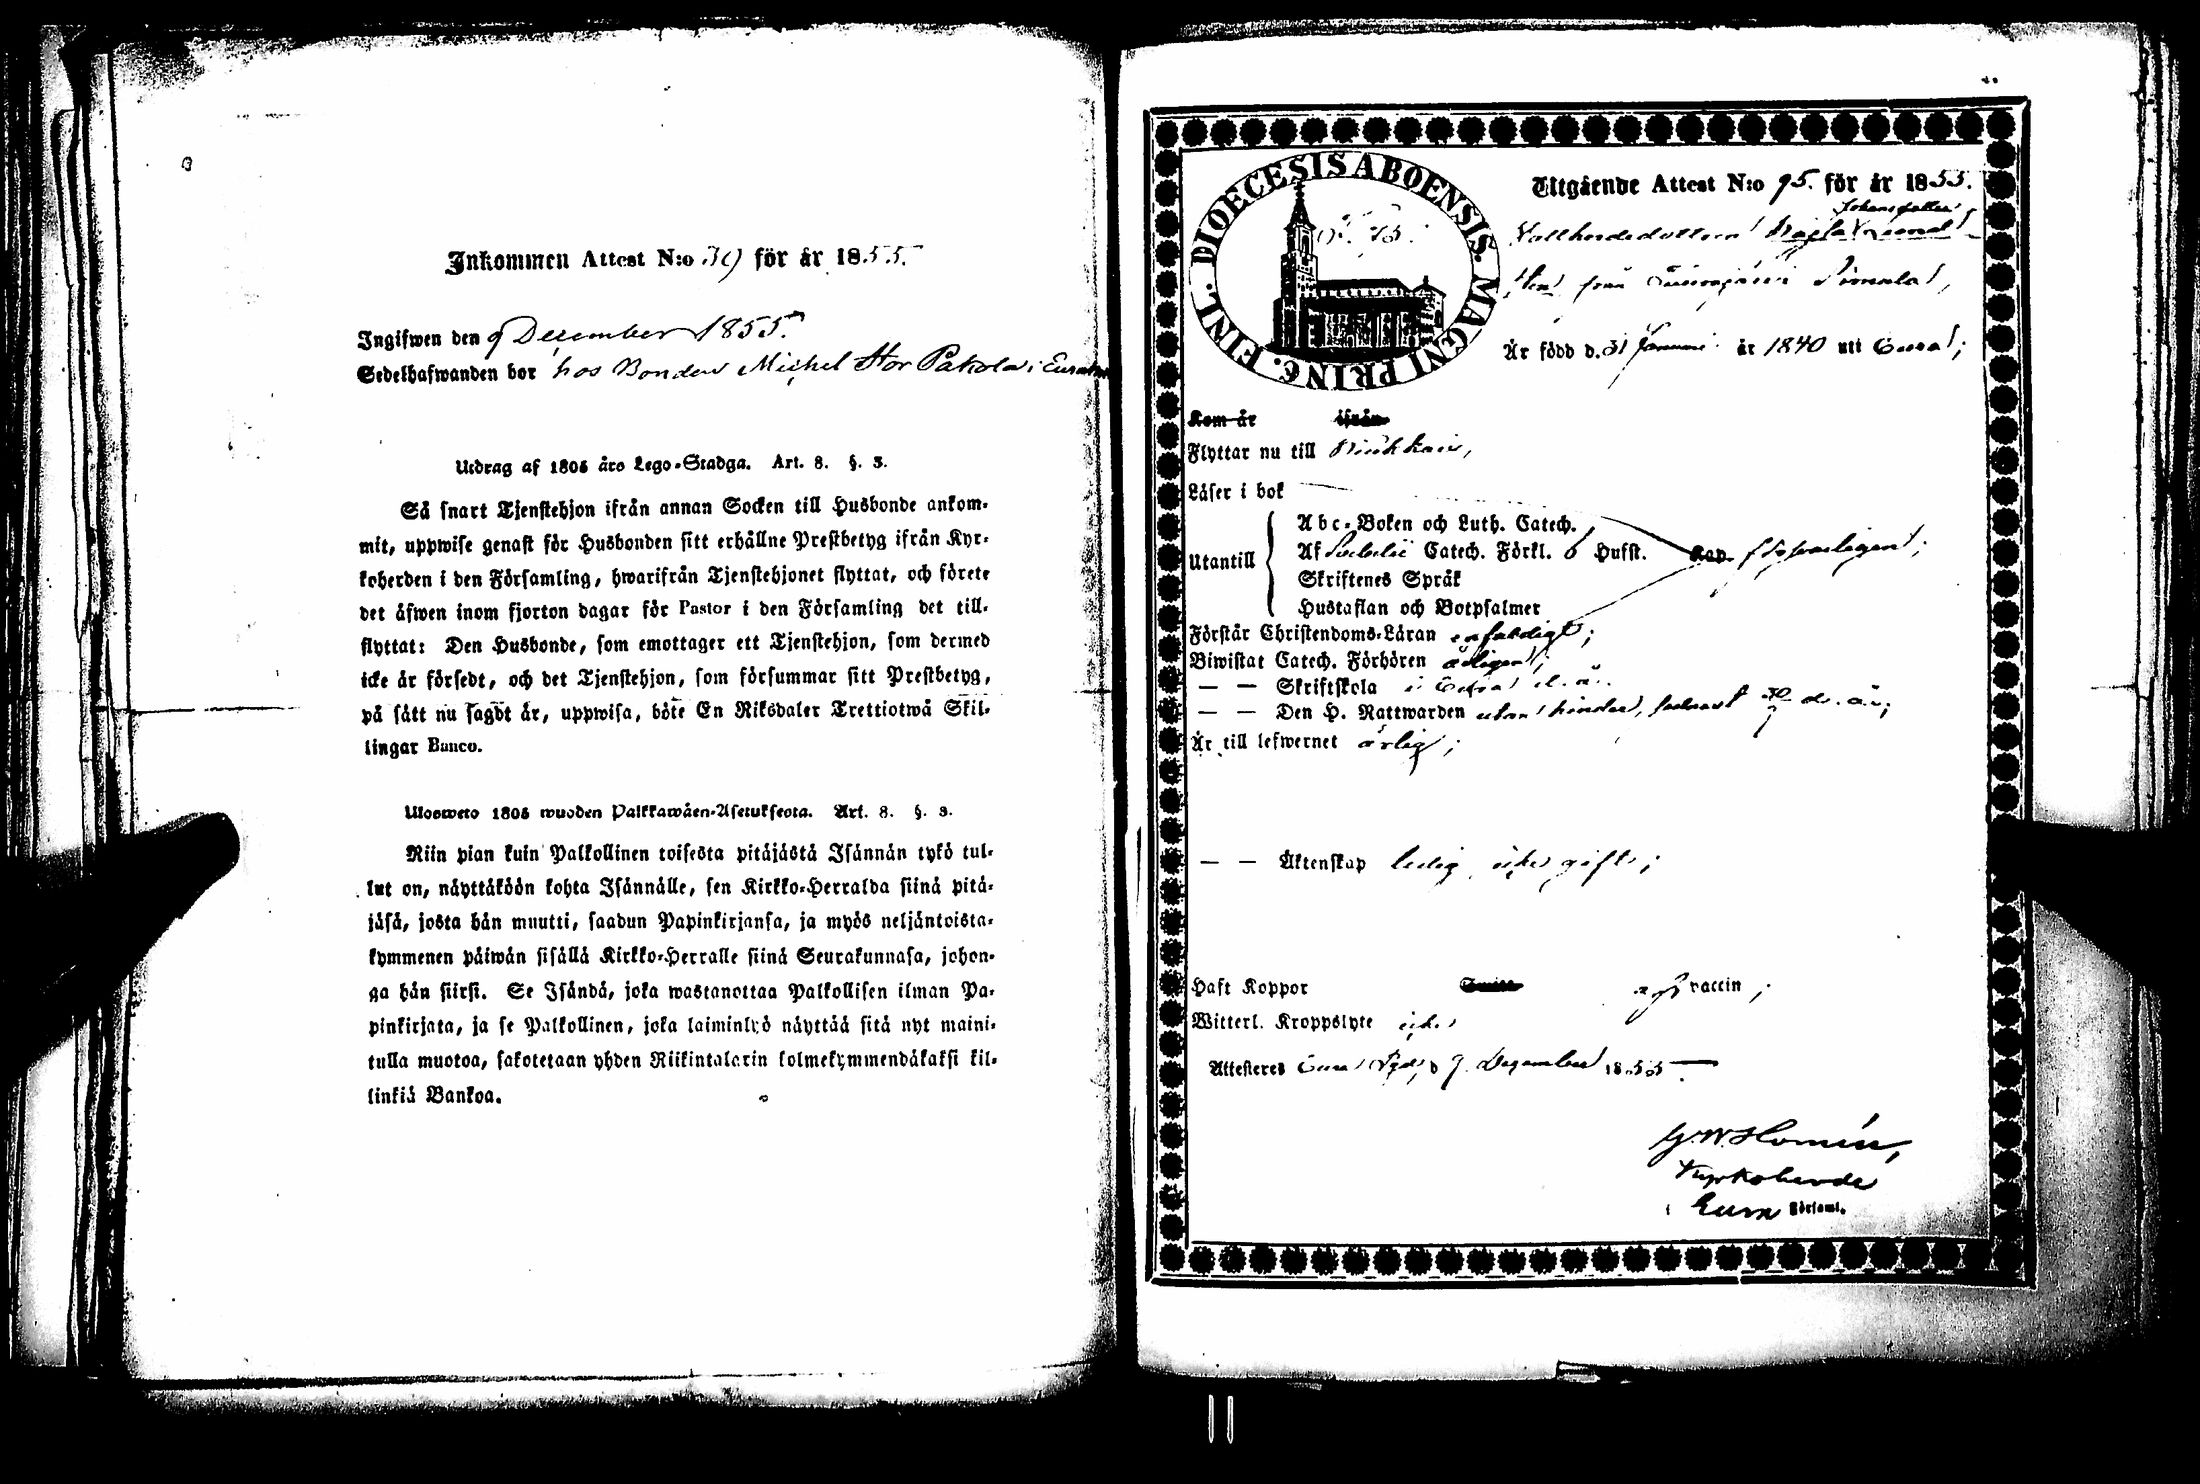 Inkommen Attest N:o 39 för år 1855.
Ingifwen den 9 December 1855.
Sedelhafwanden bor hos Bonden Michel Stor Pakola i
Utdrag af 1805 års Lego-Stadga. Art. 8. §. 3.
Så snart Tjenstehjon ifrån annan Socken till Husbonde ankom-
mit, uppwise genast för Husbonden sitt erhållne Prestbetyg ifrån Kyr-
koherden i den Församling, hwarifrån Tjenstehjonet flyttat, och förete
det äfwen inom fjorton dagar för Pastor i den Församling det till-
flyttat: Den Husbonde, som emottager ett Tjenstehjon, som dermed
icke är försedt, och det Tjenstehjon, som försummar sitt Prestbetyg,
på sätt nu sagdt är, uppwisa, böte En Riksdaler Trettiotwå Skil-
lingar Banco.
Ulosweto 1805 wuoden Palkkawäen-Asetuksesta. Art. 8. §. 3.
Niin pian kuin Palkollinen toisesta pitäjästä Isännän tykö tul-
lut on, näyttäköön kohta Isännälle, sen Kirkko-Herralda siinä pitä-
jäsä, josta hän muutti, saadun Papinkirjansa, ja myös neljäntoista-
kymmenen päiwän sisällä Kirkko-Herralle siinä Seurakunnasa, johon-
ga hän siirsi. Se Isändä, joka wastanottaa Palkollisen ilman Pa-
pinkirjata, ja se Palkollinen, joka laiminlyö näyttää sitä nyt maini-
tulla muotoa, sakotetaan yhden Riikintalarin kolmekymmendäkaksi kil-
linkiä Bankoa.
DIOECESIS ABOENSIS. MAGNI PRINC. FINL.
Utgående Attest N:o 95. för år 1855.
från
Är född d. 31 Januari år 1840 uti Eura;
Kom år ifrån
Flyttar nu till
Läser i bok
Abc-Boken och Luth. Catech.
Utantill Af Catech. Förkl. 6 Hufst. Kap.
Skriftenes Språk
Hustaflan och Botpsalmer
Förstår Christendoms-Läran enfaldigt;
Biwistat Catech. Förhören årligen;
— — Skriftskola i Eura d. å.
— — Den H. Nattwarden utan hinder, d. å.;
Är till lefwernet ärlig;
— — Äktenskap ledig, icke gift;
Haft Koppor vaccin;
Witterl. Kroppslyte icke
Attesteres Eura d 9 December 1855
Kyrkoherde
i Eura Församl.